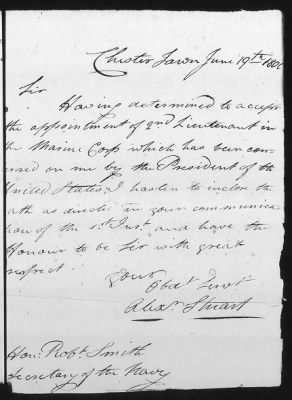 Chester Town June 19th 180
Sir
Having determined to accept
the appointment of 2nd Lieutenant in
the Marine Corp which has been con-
ered on me by the President of the
United States, I hasten to inclose the
ath as directed in your communica-
tion of the 1st Inst. and have the
Honour to be Sir with great
respect
your
Obdt Servt
Alexr Stuart
Hon: Robt Smith
Secretary of the Navy